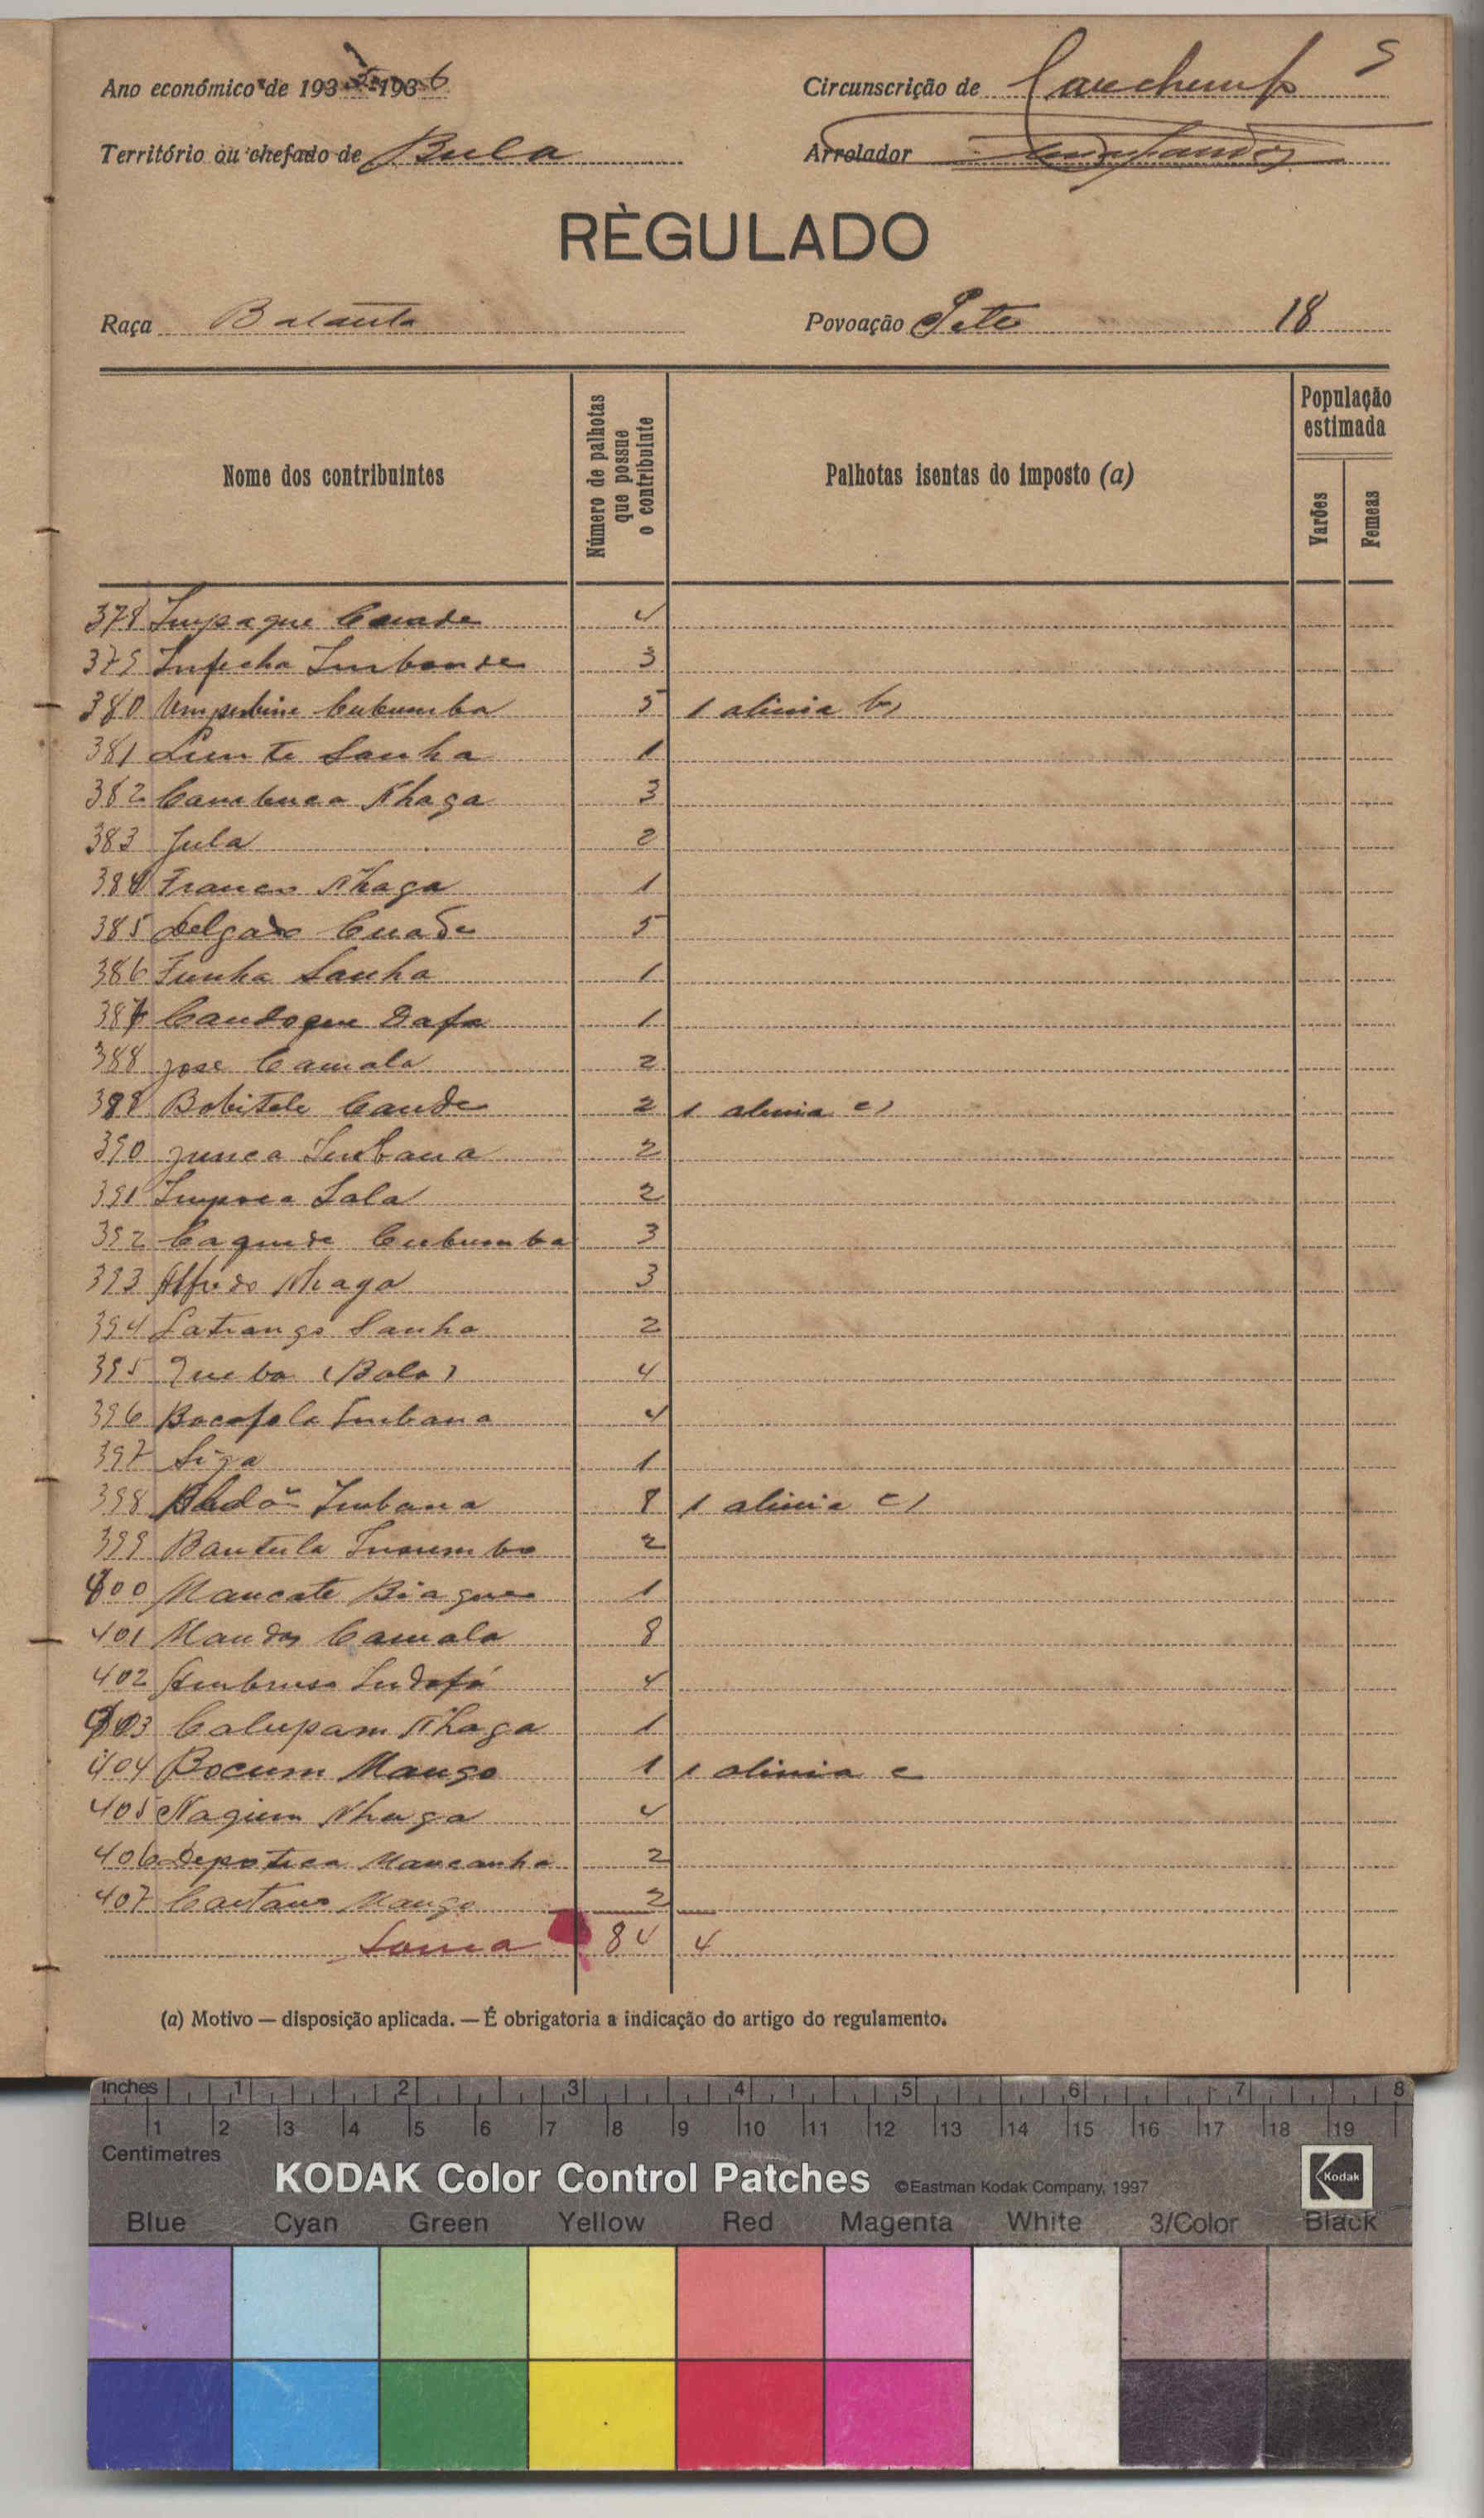 Ano económico de 193 5-1936
Circunscrição de
Território ou chefado de Bula
Arrolador
RÈGULADO
Raça Balanta
Povoação Pete 18
Nome dos contribuintes
Número de palhotas que possue o contribuinte
Palhotas isentas do imposto (a)
População estimada
Varões
Femeas
378 Impaque 4
379 Infecha Imbonde 3
380 Cubumba 5 1 alinia b)
381 Sanha 1
382 Nhaga 3
383 Jula 2
384 Franco Nhaga 1
385 Delgado Cuade 5
386 Funha Sanha 1
387 Candoque Dafa 1
388 Jose Camala 2
389 Bobitele Cande 2 1 alinia c)
390 Junca Imbana 2
391 Sala 2
392 Caquede Cubumba 3
393 Alfredo Nhaga 3
394 Latrango Sanha 2
395 Queba (Bala) 4
396 Bacafola Imbana 4
397 Siga 1
398 Imbana 8 1 alinia c)
399 Bantula 2
400 Mancate Biague 1
401 Camala 8
402 Indafá 4
403 Calupam Nhaga 1
404 Bocum Mango 1 1 alinia c
405 Nagium Nhaga 4
406 Mancanha 2
407 Caetano Mango 2
Soma 84 4
(a) Motivo — disposição aplicada. — É obrigatoria a indicação do artigo do regulamento.
Inches 1 2 3 4 5 6 7 8
1 2 3 4 5 6 7 8 9 10 11 12 13 14 15 16 17 18 19
Centimetres
KODAK Color Control Patches ©Eastman Kodak Company, 1997 Kodak
Blue Cyan Green Yellow Red Magenta White 3/Color Black